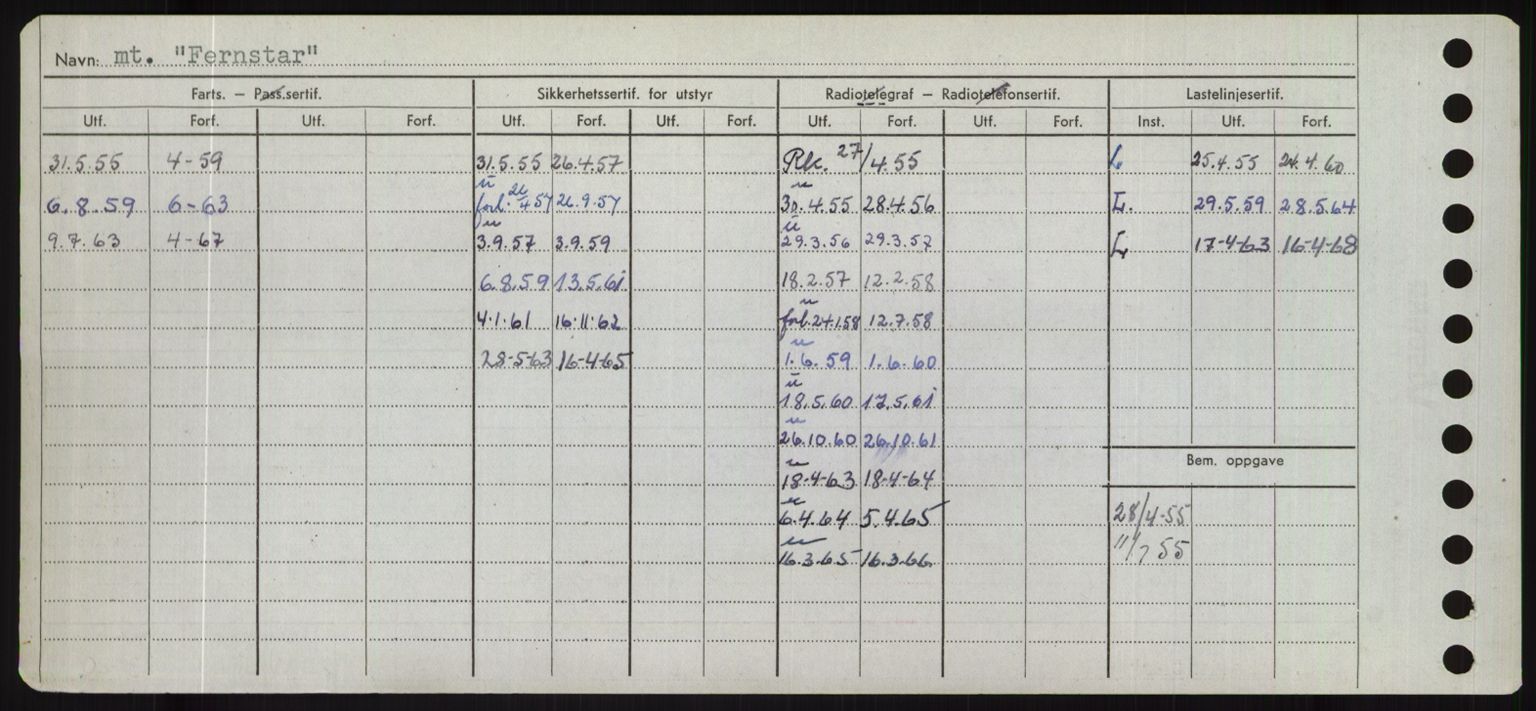 Navn: mt. "Fernstar"
Farts. — Pass.sertif. Sikkerhetssertif. for utstyr Radiotelegraf — Radiotelefonsertif. Lastelinjesertif.
Utf. Forf. Utf. Forf. Utf. Forf. Utf. Forf. Utf. Forf. Utf. Forf. Inst. Utf. Forf.
31.5.55 4-59 31.5.55 26.4.57 Rk. 27/4.55 L 25.4.55 24.4.60
ü u
6.8.59 6-63 forl. 26/4 57 26.9.57 30.4.55 28.4.56 L. 29.5.59 28.5.64
u ü
9.7.63 4-67 3.9.57 3.9.59 29.3.56 29.3.57 L 17-4-63 16-4-68
6.8.59 13.5.61 18.2.57 12.2.58
u
4.1.61 16.11.62 forl.24.1.58 12.7.58
u
28-5-63 16-4-65 1.6.59 1.6.60
ü
18.5.60 17.5.61
u
26.10.60 26.10.61
Bem. oppgave
u
18-4-63 18-4-64
u
6.4.64 5.4.65 28/4-55
u
16.3.65 16.3.66 11/7 55